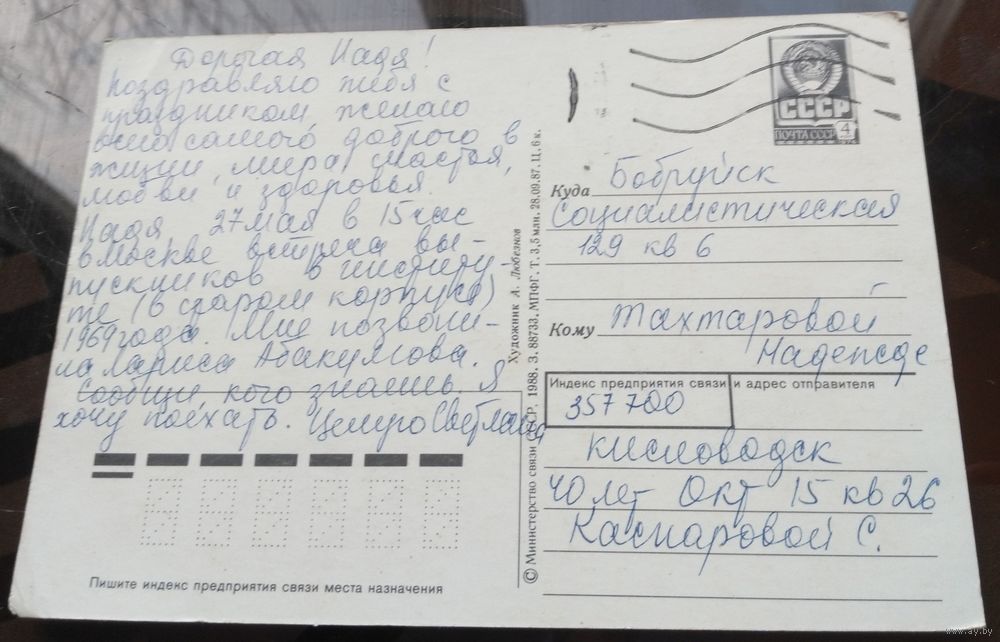 Дорогая Надя!
Поздравляю тебя с
праздником, желаю
всего самого доброго в
жизни, мира, счастья,
любви и здоровья.
Надя 27 мая в 15 час
в Москве встреча вы-
пускников в институ-
те (в старом корпусе)
1969 года. Мне позвони-
ла Лариса Абакумова.
Сообщи, кого знаешь. Я
хочу поехать. Целую Светлана
Пишите индекс предприятия связи места назначения
© Министерство связи СССР. 1988. З. 88733. МПФГ. Т. 3,5 млн. 28.09.87. Ц. 6 к.
Художник А. Любезнов
СССР
ПОЧТА СССР 4
Куда Бобруйск
Социалистическая
129 кв 6
Кому Тахтаровой
Надежде
Индекс предприятия связи и адрес отправителя
357700
Кисловодск
40 лет Окт 15 кв 26
Каспаровой С.
www.ay.by